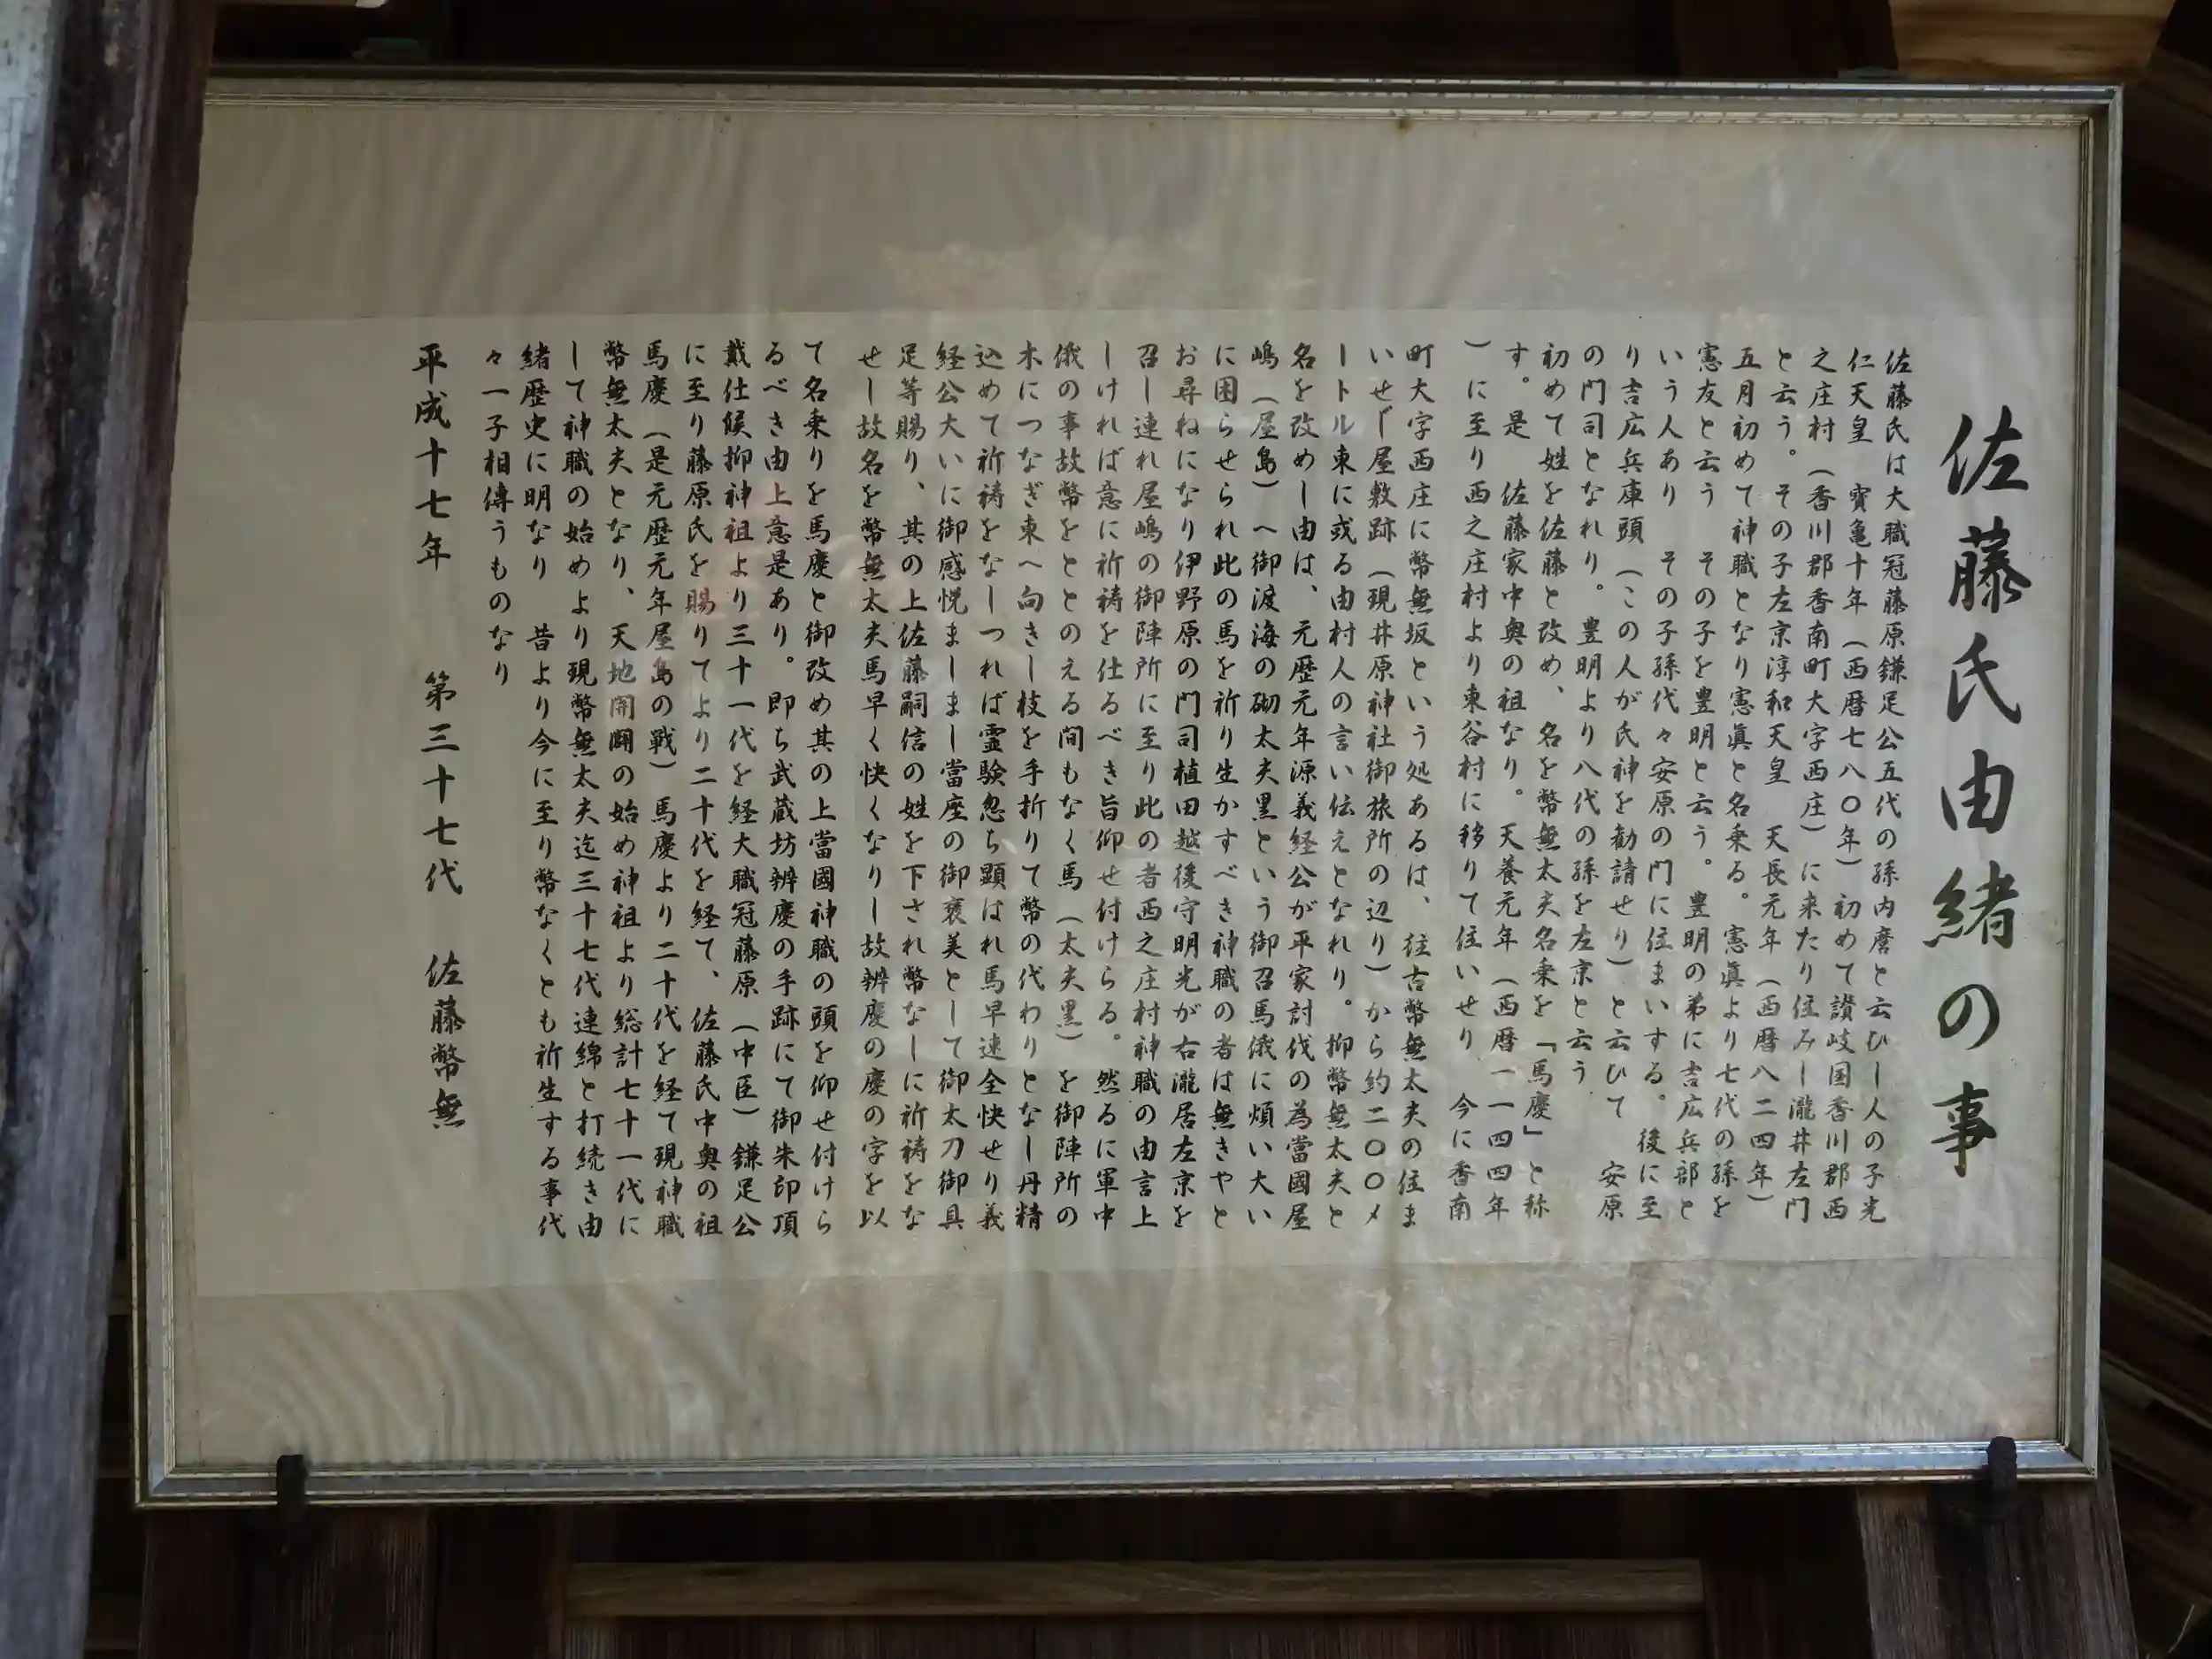 佐藤氏由緒の事
佐藤氏は大職冠藤原鎌足公五代の孫内麿と云ひし人の子光
仁天皇　寳亀十年（西暦七八〇年）初めて讃岐国香川郡西
之庄村（香川郡香南町大字西庄）に来たり住みし瀧井左門
と云う。その子左京淳和天皇　天長元年（西暦八二四年）
五月初めて神職となり憲眞と名乗る。憲眞より七代の孫を
憲友と云う　その子を豊明と云う。豊明の弟に吉広兵部と
いう人あり　その子孫代々安原の門に住まいする。後に至
り吉広兵庫頭（この人が氏神を勧請せり）と云ひて　安原
の門司となれり。豊明より八代の孫を左京と云う
初めて姓を佐藤と改め、名を幣無太夫名乗を「馬慶」と称
す。是　佐藤家中奥の祖なり。天養元年（西暦一一四四年
）に至り西之庄村より東谷村に移りて住いせり　今に香南
町大字西庄に幣無坂という処あるは、往古幣無太夫の住ま
いせし屋敷跡（現井原神社御旅所の辺り）から約二〇〇メ
ートル東に或る由村人の言い伝えとなれり。抑幣無太夫と
名を改めし由は、元歴元年源義経公が平家討伐の為當國屋
嶋（屋島）へ御渡海の砌太夫黒という御召馬俄に煩い大い
に困らせられ此の馬を祈り生かすべき神職の者は無きやと
お尋ねになり伊野原の門司植田越後守明光が右瀧居左京を
召し連れ屋嶋の御陣所に至り此の者西之庄村神職の由言上
しければ意に祈祷を仕るべき旨仰せ付けらる。然るに軍中
俄の事故幣をととのえる間もなく馬（太夫黒）を御陣所の
木につなぎ東へ向きし枝を手折りて幣の代わりとなし丹精
込めて祈祷をなしつれば霊験忽ち顕はれ馬早速全快せり義
経公大いに御感悦ましまし當座の御褒美として御太刀御具
足等賜り、其の上佐藤嗣信の姓を下され幣なしに祈祷をな
せし故名を幣無太夫馬早く快くなりし故辨慶の慶の字を以
て名乗りを馬慶と御改め其の上當國神職の頭を仰せ付けら
るべき由上意是あり。即ち武蔵坊辨慶の手跡にて御朱印頂
戴仕候抑神祖より三十一代を経大職冠藤原（中臣）鎌足公
に至り藤原氏を賜りてより二十代を経て、佐藤氏中奥の祖
馬慶（是元歴元年屋島の戦）馬慶より二十代を経て現神職
幣無太夫となり、天地開闢の始め神祖より総計七十一代に
して神職の始めより現幣無太夫迄三十七代連綿と打続き由
緒歴史に明なり　昔より今に至り幣なくとも祈生する事代
々一子相傳うものなり
平成十七年　第三十七代　佐藤幣無